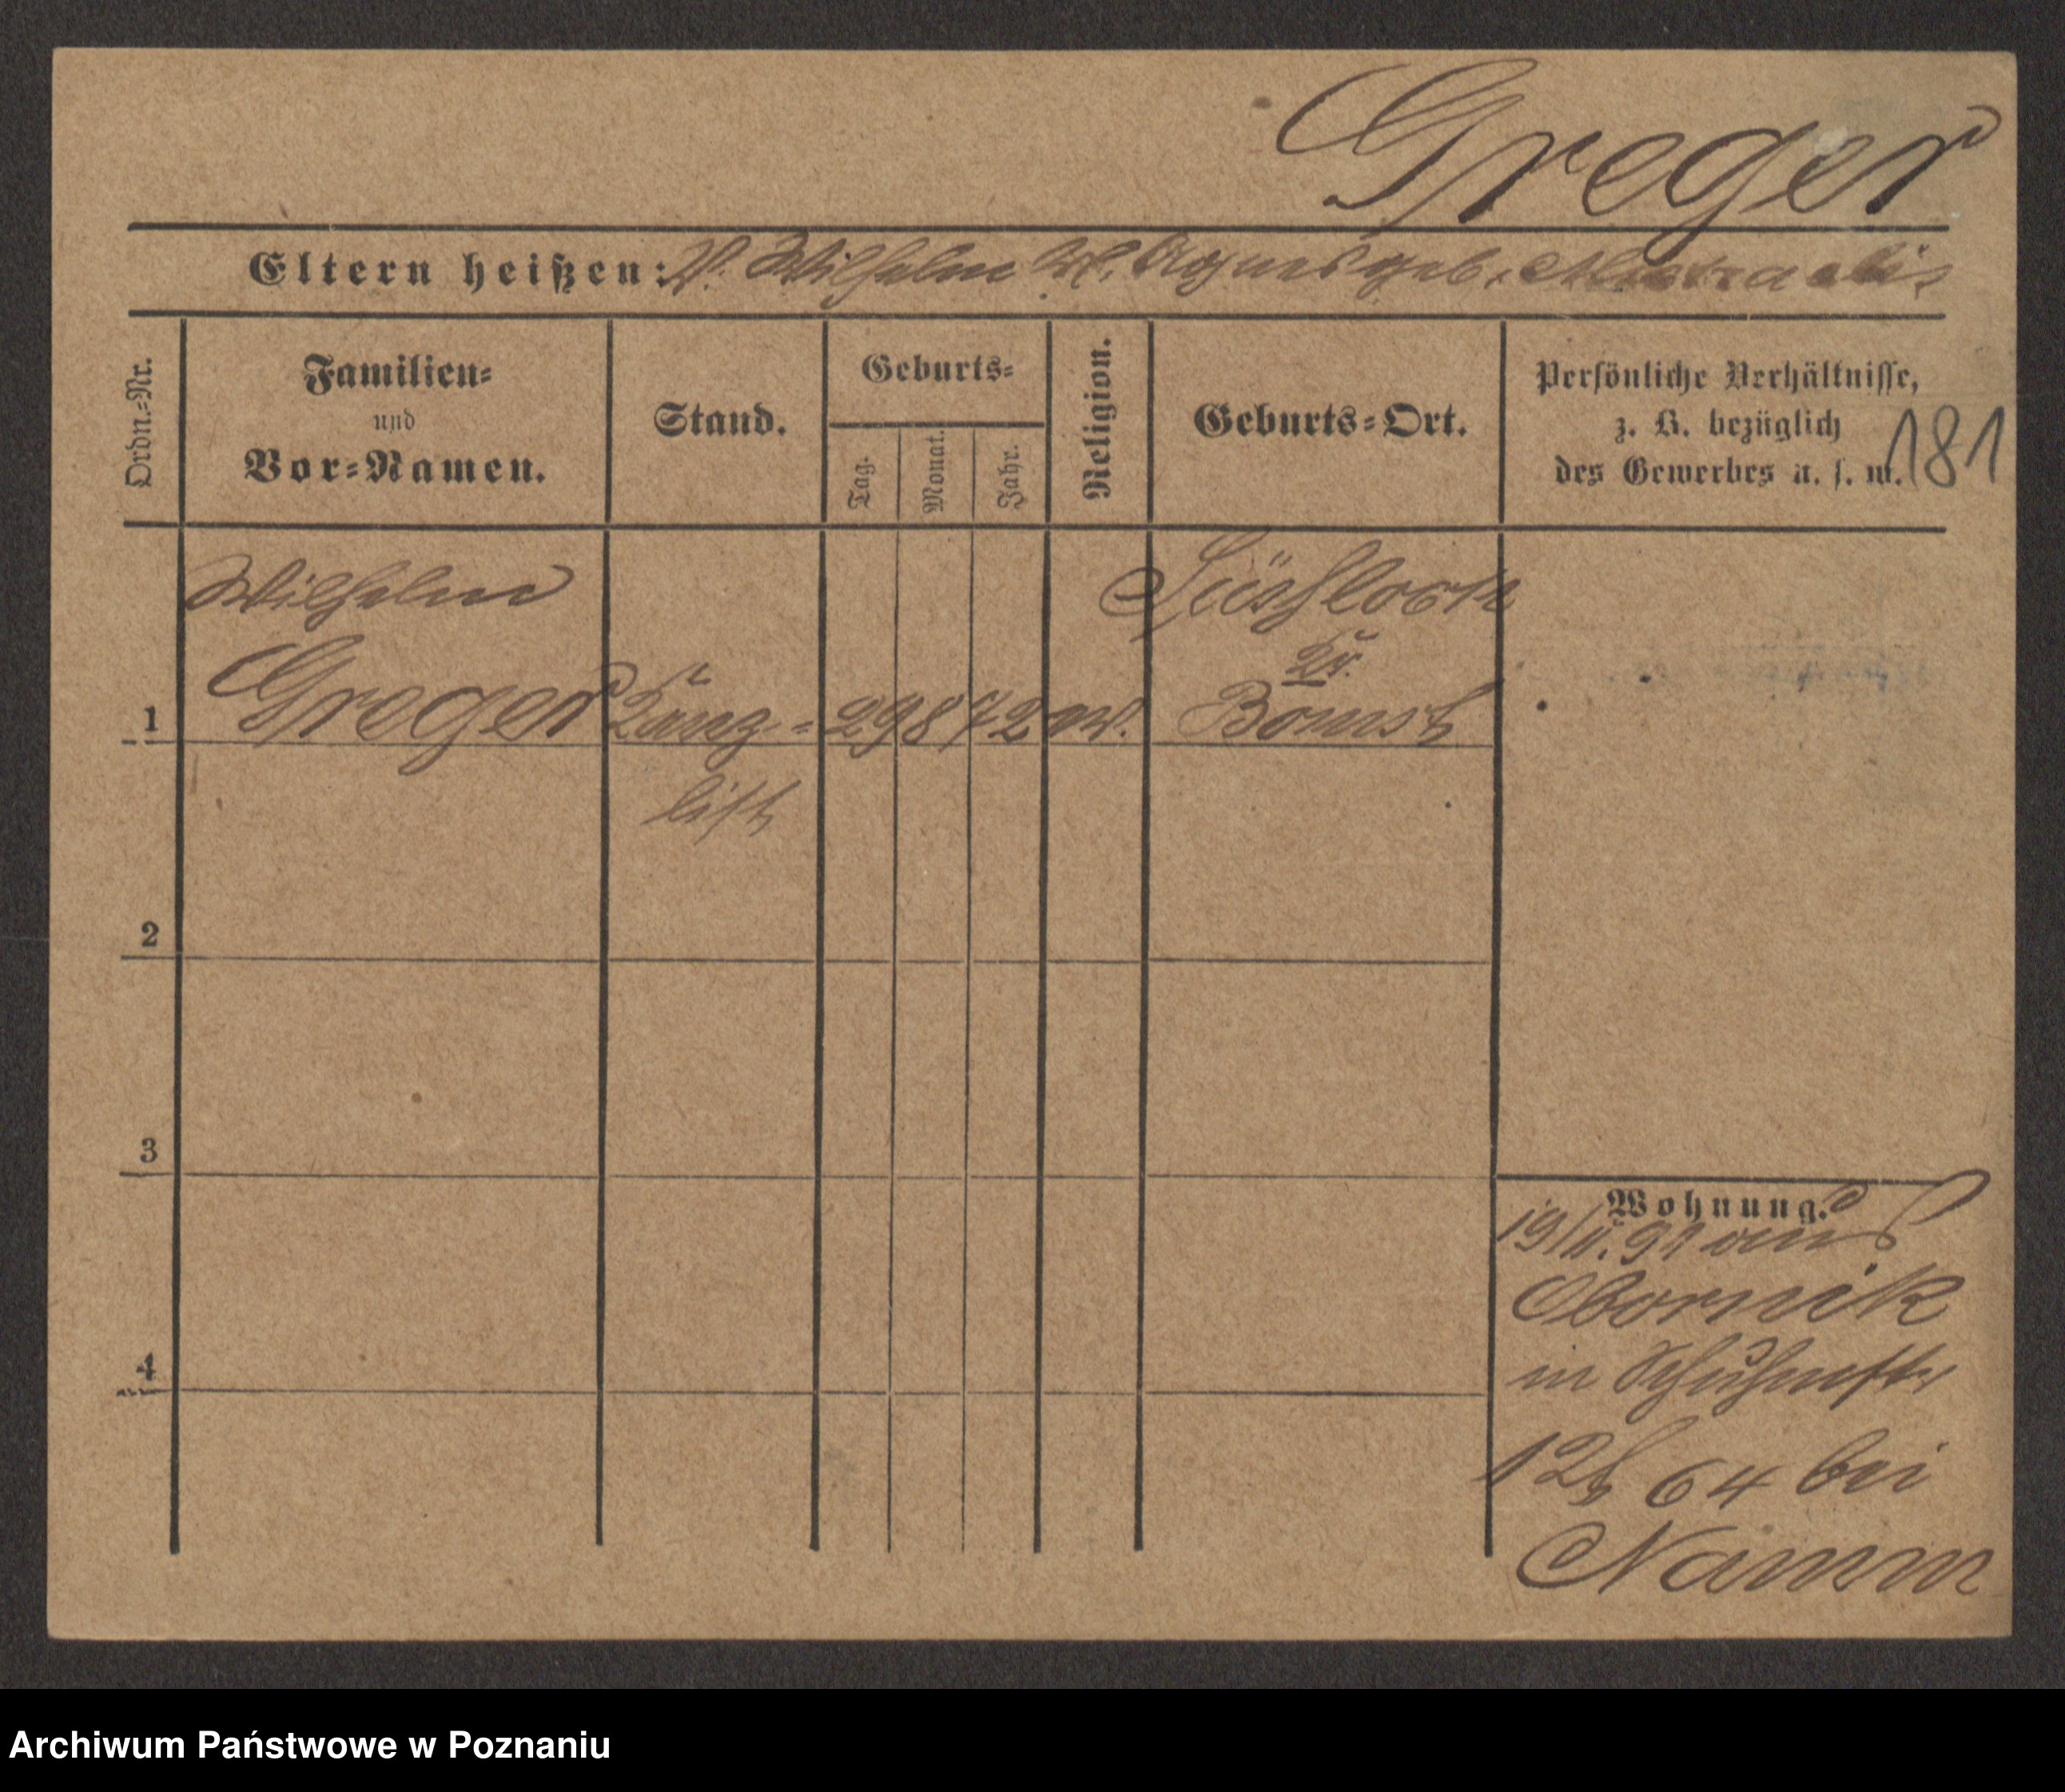 Greger
Eltern heißen: V. Wilhelm M. Agnes geb.
Ordn.-Nr.
Familien-
und
Vor-Namen.
Stand.
Geburts-
Tag.
Monat.
Jahr.
Religion.
Geburts-Ort.
Persönliche Verhältnisse,
z. B. bezüglich
des Gewerbes u. s. w.
181
Wilhelm
Kr.
1 Greger Kanz- 29 8 72 ev. Bomst
list
2
3
4
Wohnung.
aus
Obornik
in
64 bei
Namm
Archiwum Państwowe w Poznaniu